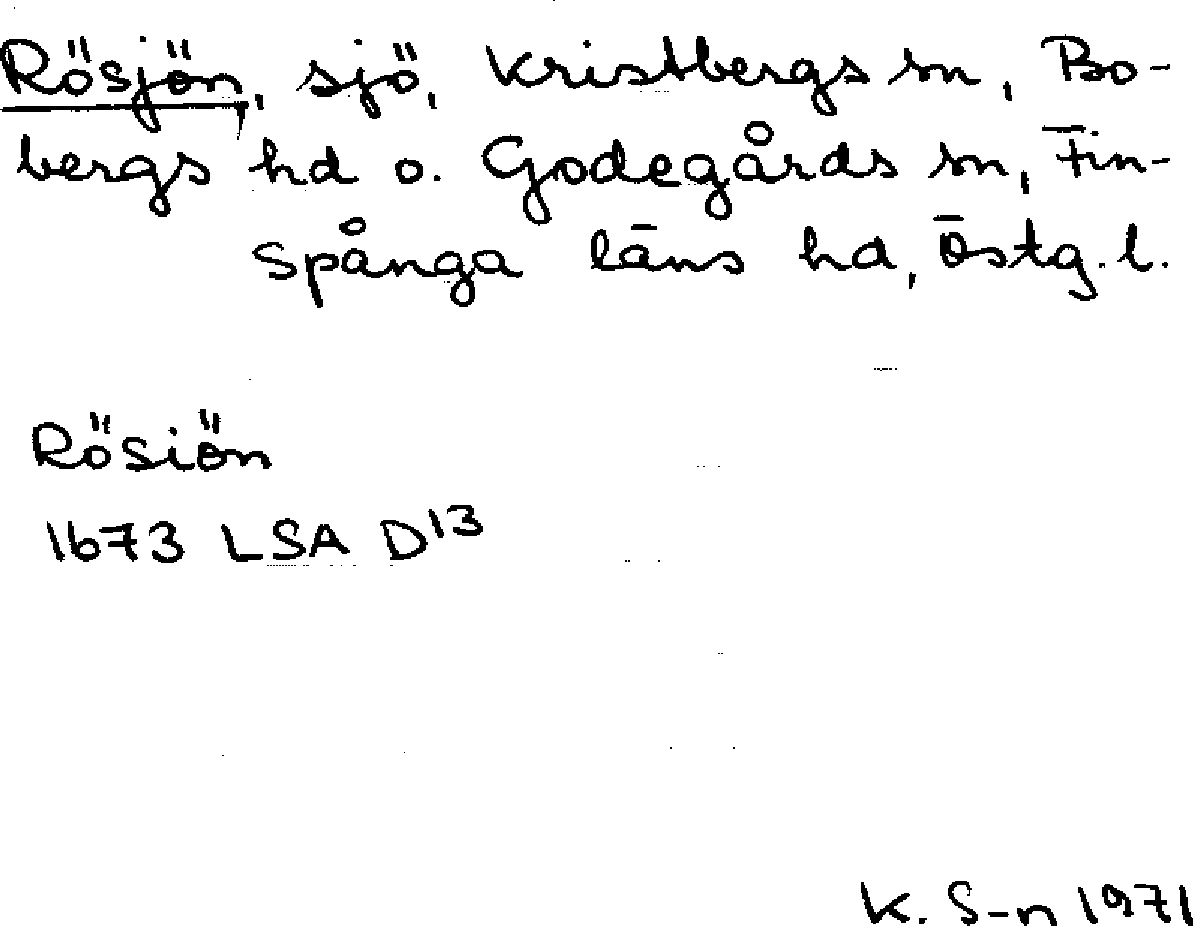 Rösjön, sjö, Kristbergs sn, Bo-
bergs hd o. Godegårds sn, Fin-
spånga läns hd, Östg. l.
Rösiön
1673 LSA D13
K. S-n 1971